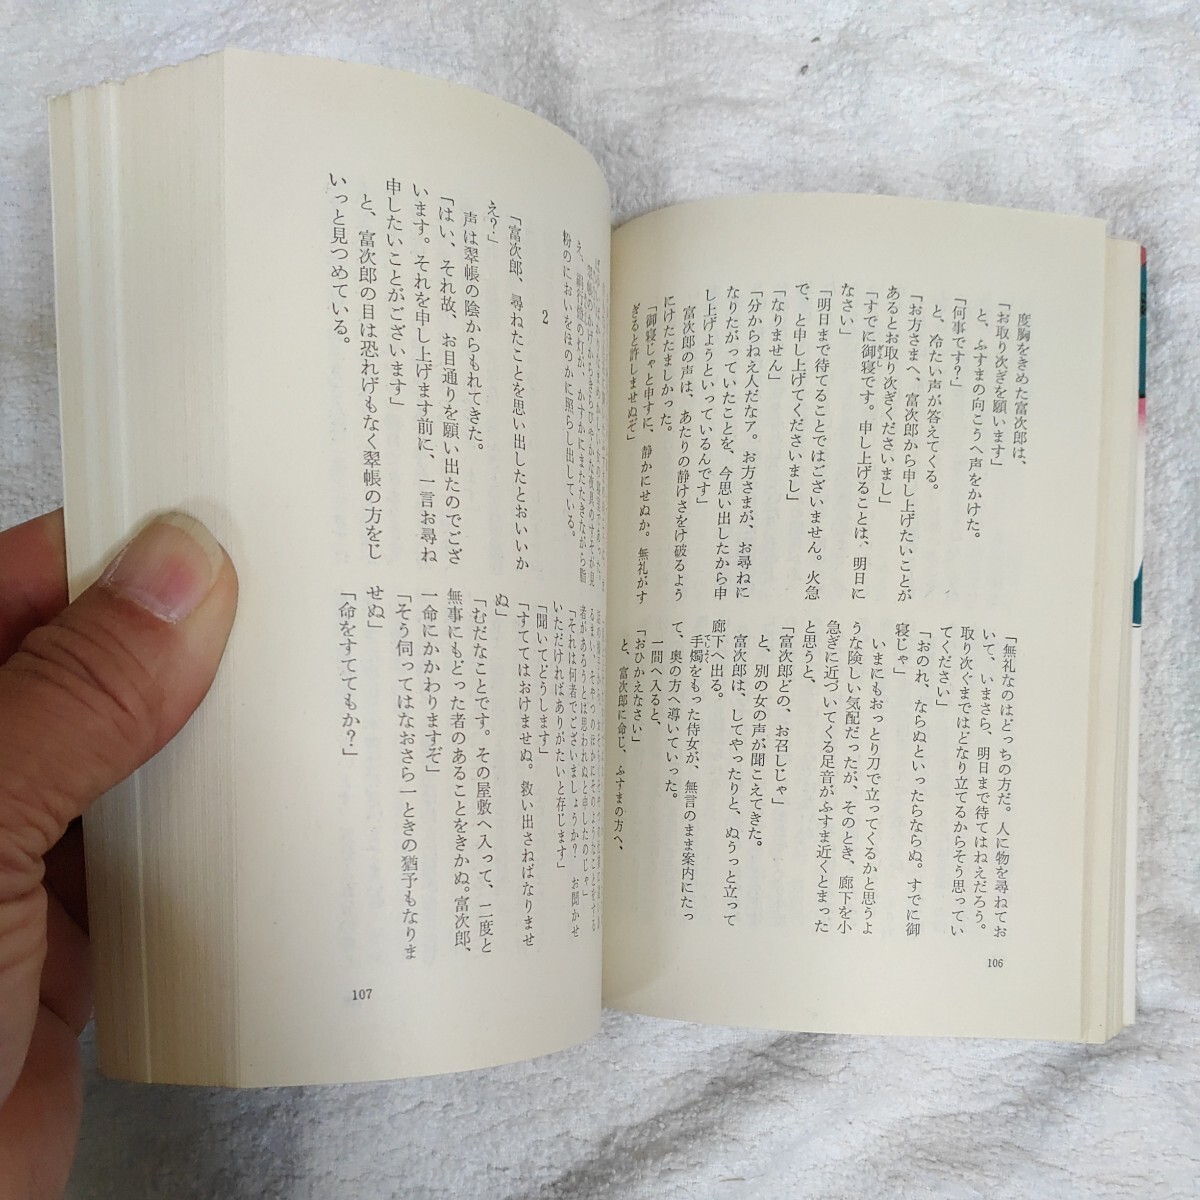 度胸をきめた富次郎は、
「お取り次ぎを願います」
と、ふすまの向こうへ声をかけた。
「何事です？」
と、冷たい声が答えてくる。
「お方さまへ、富次郎から申し上げたいことが
あるとお取り次ぎくださいまし」
「すでに御寝です。申し上げることは、明日に
なさい」
「明日まで待てることではございません。火急
で、と申し上げてくださいまし」
「なりません」
「分からねえ人だなア。お方さまが、お尋ねに
なりたがっていたことを、今思い出したから申
し上げようといっているんです」
富次郎の声は、あたりの静けさをけ破るよう
にけたたましかった。
「御寝じゃと申すに、静かにせぬか。無礼がす
ぎると許しませぬぞ」
「無礼なのはどっちの方だ。人に物を尋ねてお
いて、いまさら、明日まで待てはねえだろう。
取り次ぐまではどなり立てるからそう思ってい
てください」
「おのれ、ならぬといったらならぬ。すでに御
寝じゃ」
いまにもおっとり刀で立ってくるかと思うよ
うな険しい気配だったが、そのとき、廊下を小
急ぎに近づいてくる足音がふすま近くとまった
と思うと、
「富次郎どの、お召しじゃ」
と、別の女の声が聞こえてきた。
富次郎は、してやったりと、ぬうっと立って
廊下へ出る。
手燭をもった侍女が、無言のまま案内にたっ
て、奥の方へ導いていった。
一間へ入ると、
「おひかえなさい」
と、富次郎に命じ、ふすまの方へ、
106
え、絹行燈の灯が、かすかにまたたきながら脂
粉のにおいをほのかに照らし出している。
2
「富次郎、尋ねたことを思い出したとおいいか
え？」
声は翠帳の陰からもれてきた。
「はい、それ故、お目通りを願い出たのでござ
います。それを申し上げます前に、一言お尋ね
申したいことがございます」
と、富次郎の目は恐れげもなく翠帳の方をじ
いっと見つめている。
者があろうとは思われぬと申したのじゃ」
「それは何者でございましょうか？　お聞かせ
いただければありがたいと存じます」
「聞いてどうします」
「すててはおけませぬ。救い出さねばなりませ
ぬ」
「むだなことです。その屋敷へ入って、二度と
無事にもどった者のあることをきかぬ。富次郎、
一命にかかわりますぞ」
「そう伺ってはなおさら一ときの猶予もなりま
せぬ」
「命をすててもか？」
107